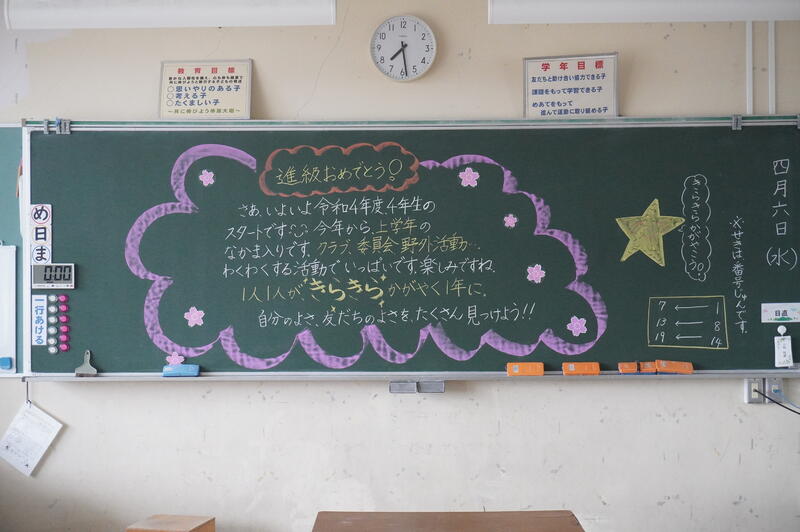 教育目標
○思いやりのある子
○考える子
○たくましい子
学年目標
友だちと助け合い協力できる子
課題をもって学習できる子
めあてをもって
進んで運動に取り組める子
進級おめでとう!
さあ、いよいよ令和4年度、4年生の
スタートです。今年から、上学年の
なかま入りです。クラブ、委員会、野外活動…
わくわくする活動でいっぱいです。楽しみですね。
1人1人がきらきらかがやく1年に。
自分のよさ、友だちのよさを、たくさん見つけよう!!
きらきらかがやこう!
四月六日(水)
※せきは番号じゅんです。
7 ← 1
13 ← 8
19 ← 14
日直
め
日
ま
0:00
一行あける